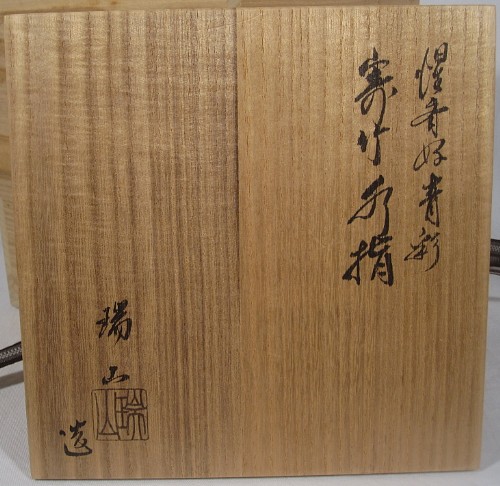 惺斎好青彩
寒竹水指
瑞山
造
瑞山